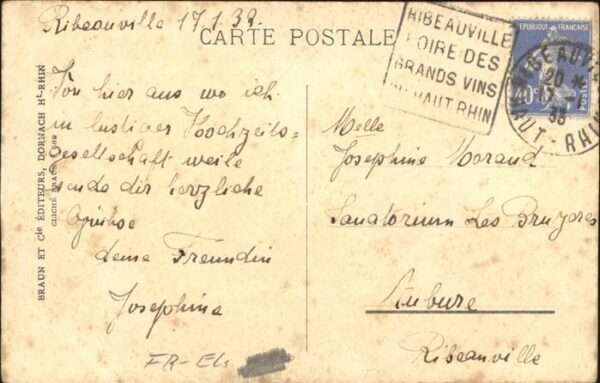 Ribeauville 17.1.38.
CARTE POSTALE
RIBEAUVILLE
FOIRE DES
GRANDS VINS
HAUT RHIN
REPUBLIQUE FRANÇAISE
40c
POSTES
RIBEAUVILLE
20
38
HAUT-RHIN
BRAUN ET Cie ÉDITEURS, DORNACH Ht-RHIN
CLICHÉ
Von hier aus wo ich
in lustiger Hochzeits-
gesellschaft weile
sende dir herzliche
Grüsse
deine Freundin
Josephine
Melle
Josephine Morand
Sanatorium Les Bruyeres
Aubure
Ribeauville
FR-Els